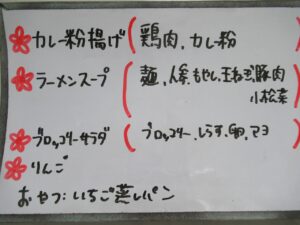 カレー粉揚げ(鶏肉、カレー粉
ラーメンスープ(麺、人参、もやし、玉ねぎ、豚肉
小松菜
ブロッコリーサラダ(ブロッコリー、しらす、卵、マヨ
りんご
おやつ:いちご蒸しパン